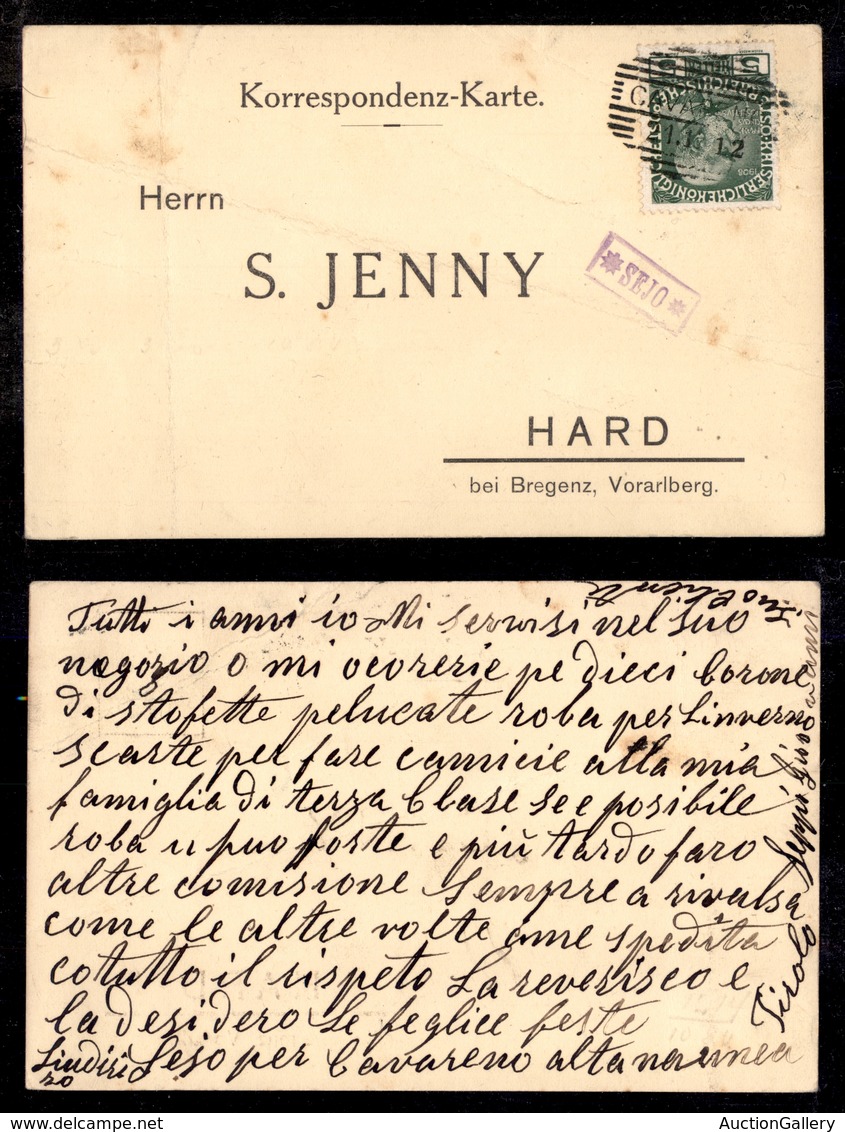 Korrespondenz-Karte.
5 5
HELLER
1908
CAVA
12
Herrn
S. JENNY
SEJO
HARD
bei Bregenz, Vorarlberg.
Suo Clienti
Tutti i anni io Mi servisi nel suo
negozio o mi ocorerie pe dieci Corone
di stofette pelucate roba per Linverno
scarte per fare camicie alla mia
famiglia di terza Clase se e posibile
roba u puo forte e più tardo faro
altre comisione sempre a rivalsa
come le altre volte ame spedita
cotutto il rispeto La reverisco e
la desidero Le feglice feste
Lindirizo Sejo per Cavareno alta
Tirolo Seppi Giovanni
AuctionGallery